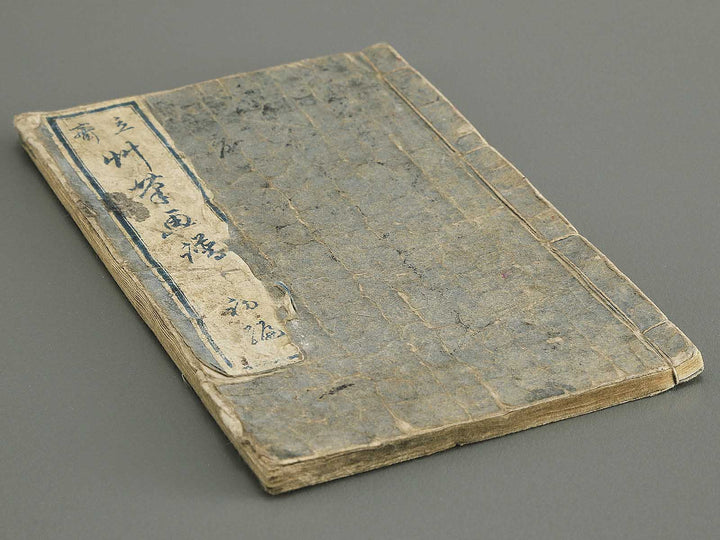 立斎
艸筆画譜
初編